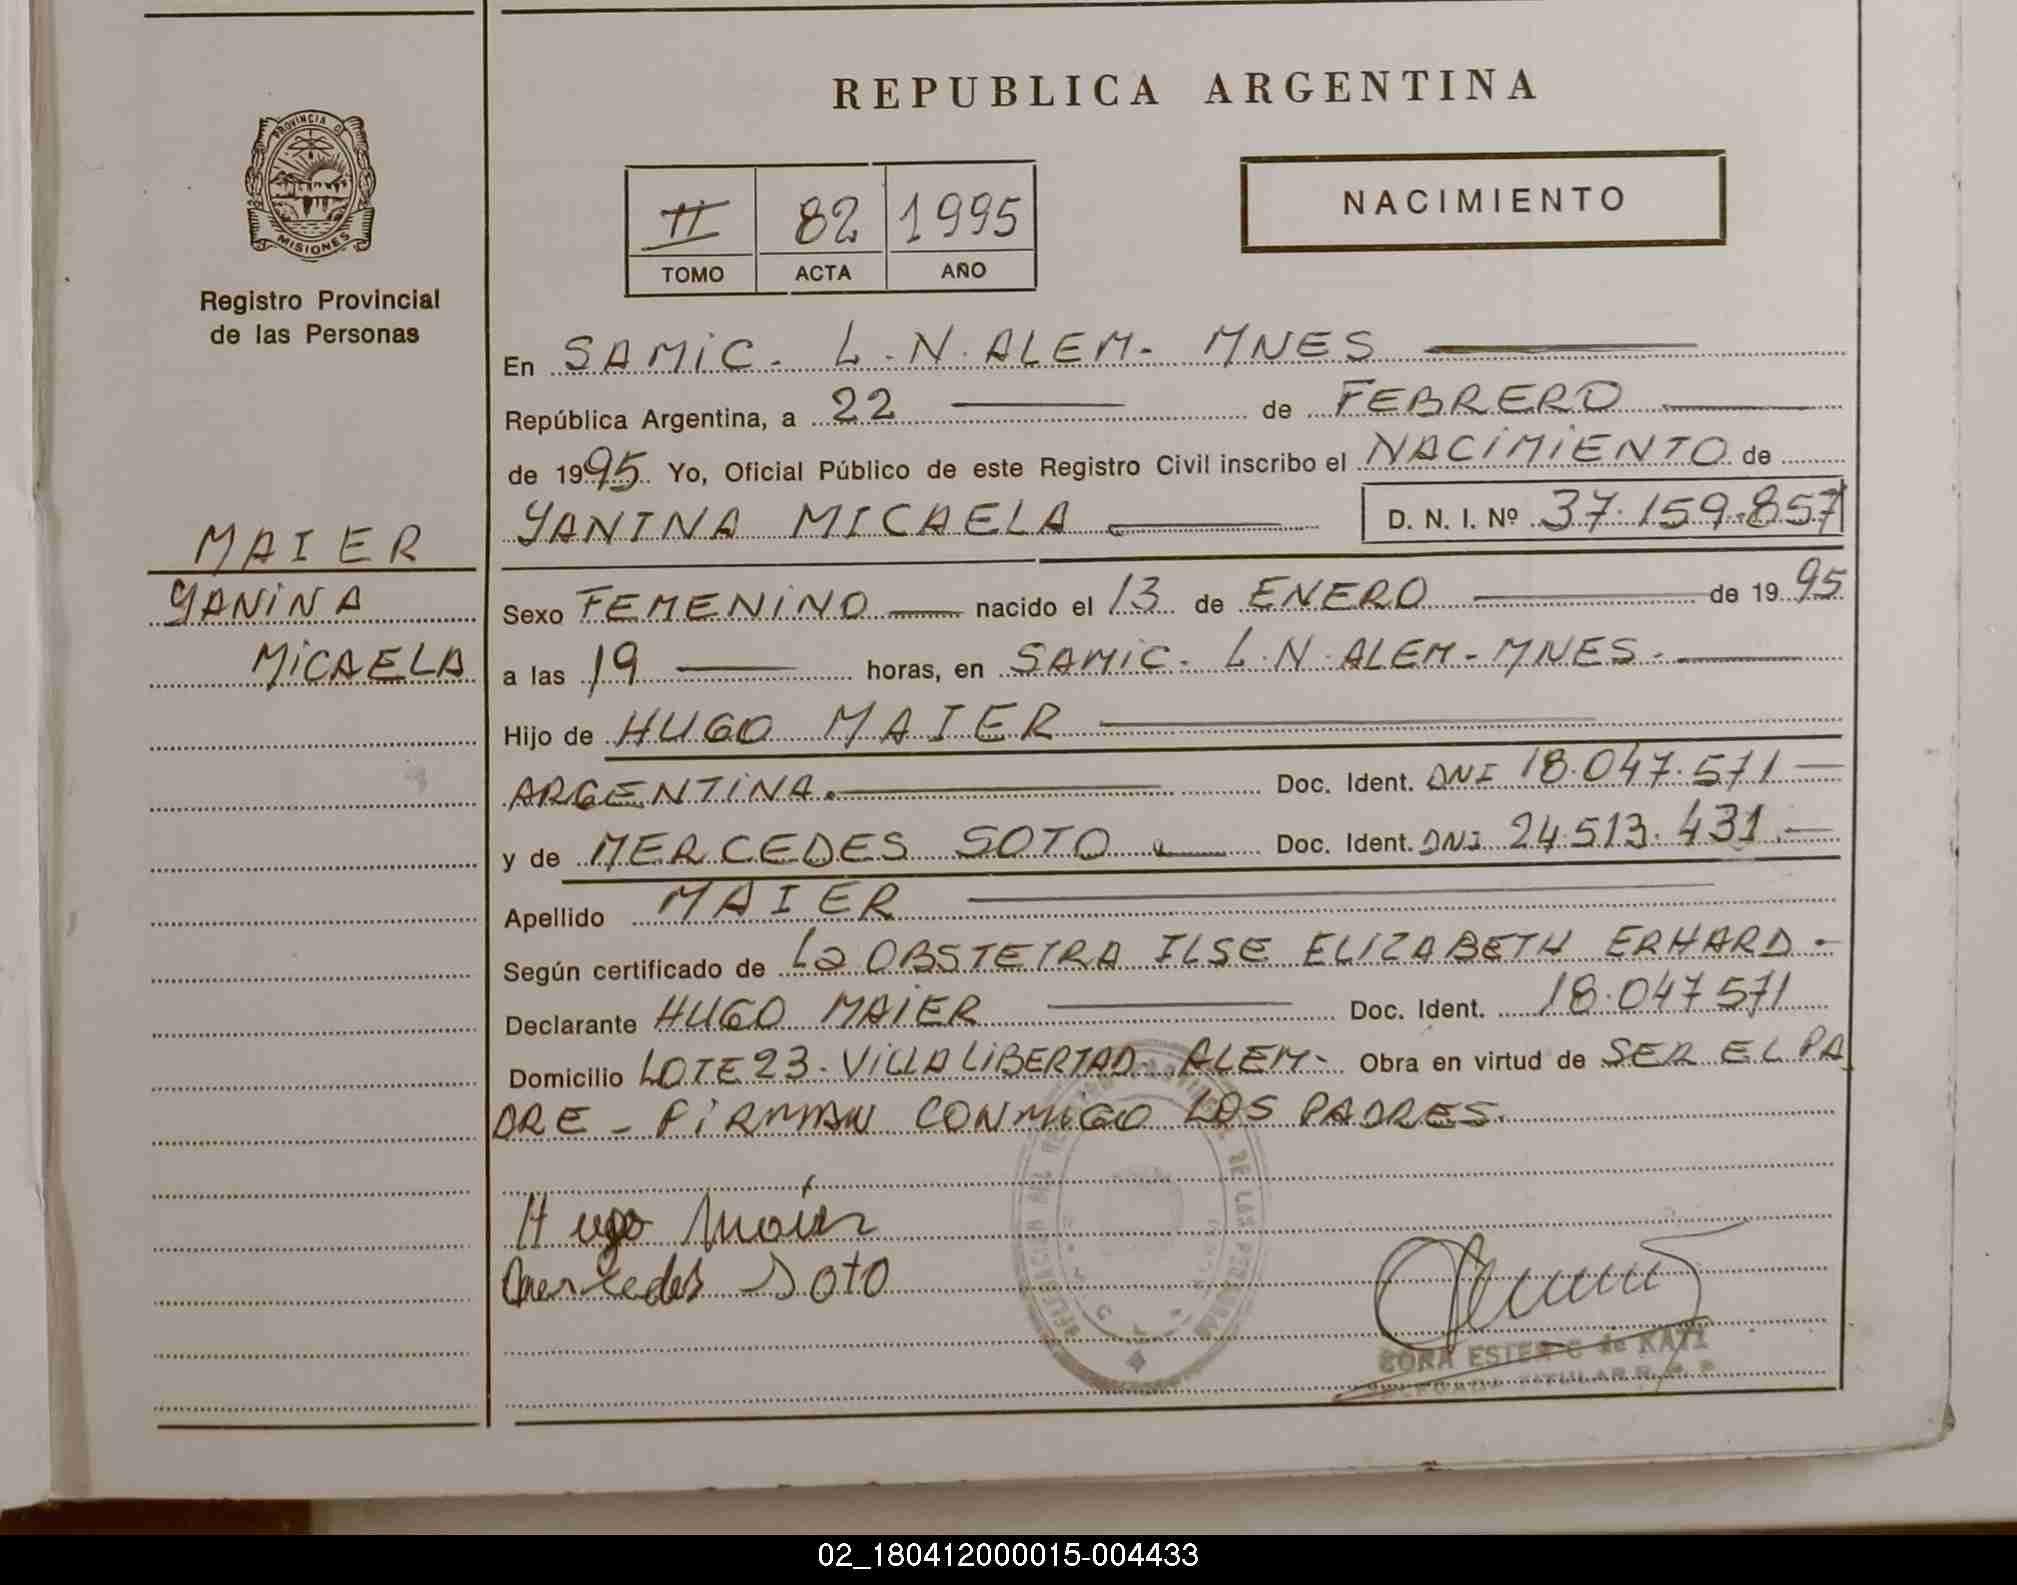 REPUBLICA ARGENTINA
PROVINCIA DE
MISIONES
Registro Provincial
de las Personas
II 82 1995
TOMO ACTA AÑO
NACIMIENTO
MAIER
YANINA
MICAELA
En SAMIC - L.N. ALEM - MNES
República Argentina, a 22 de FEBRERO
de 1995 Yo, Oficial Público de este Registro Civil inscribo el NACIMIENTO de
YANINA MICAELA D. N. I. Nº 37.159.857
Sexo FEMENINO nacido el 13 de ENERO de 1995
a las 19 horas, en SAMIC - L.N. ALEM - MNES -
Hijo de HUGO MAIER
ARGENTINA. Doc. Ident. DNI 18.047.571
y de MERCEDES SOTO Doc. Ident. DNI 24.513.431.
Apellido MAIER
Según certificado de La OBSTETRA ILSE ELIZABETH ERHARD -
Declarante HUGO MAIER Doc. Ident. 18.047571
Domicilio LOTE 23 - VILLA LIBERTAD - ALEM - Obra en virtud de SER EL PA
DRE - FIRMAN CONMIGO LOS PADRES.
Hugo Maier
Mercedes Soto
ESTER C de KATZ
TITULAR
02_180412000015-004433